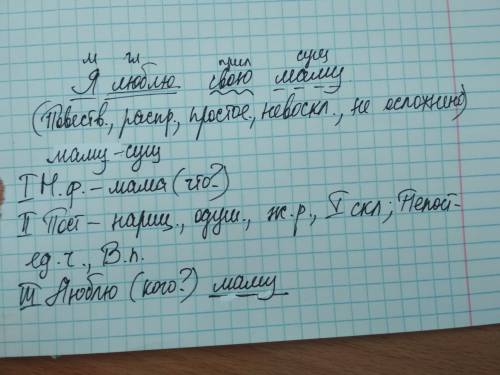 м гл прил сущ
Я люблю свою маму
(Повеств., распр., простое, невоскл., не осложнено)
маму-сущ
I Н.ф. – мама (что?)
II Пост – нариц., одуш., ж.р., I скл; Непост-
ед.ч., В.п.
III Люблю (кого?) маму